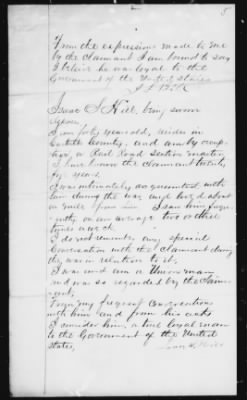 5
From the expressions made to me
by the claimant I am bound to say
I believe he was loyal to the
Government of the United States
Isaac S. Hill, being sworn
says
I am forty years old, reside in
County, and am by occu-
a Rail Road Section master
I have known the claimant twenty
five years.
I was intimately acquainted with
him during the war and lived about
a mile from him I saw him freque-
ntly on an average two or three
times a week.
I do not remember any special
conversation with the claimant during
the war in relation to it,
I was and am a Union man
and was so regarded by the claim-
ant,
From my frequent conversations
with him and from his acts
I consider him a true loyal man
to the Government of the United
States,
Isaac S. Hill